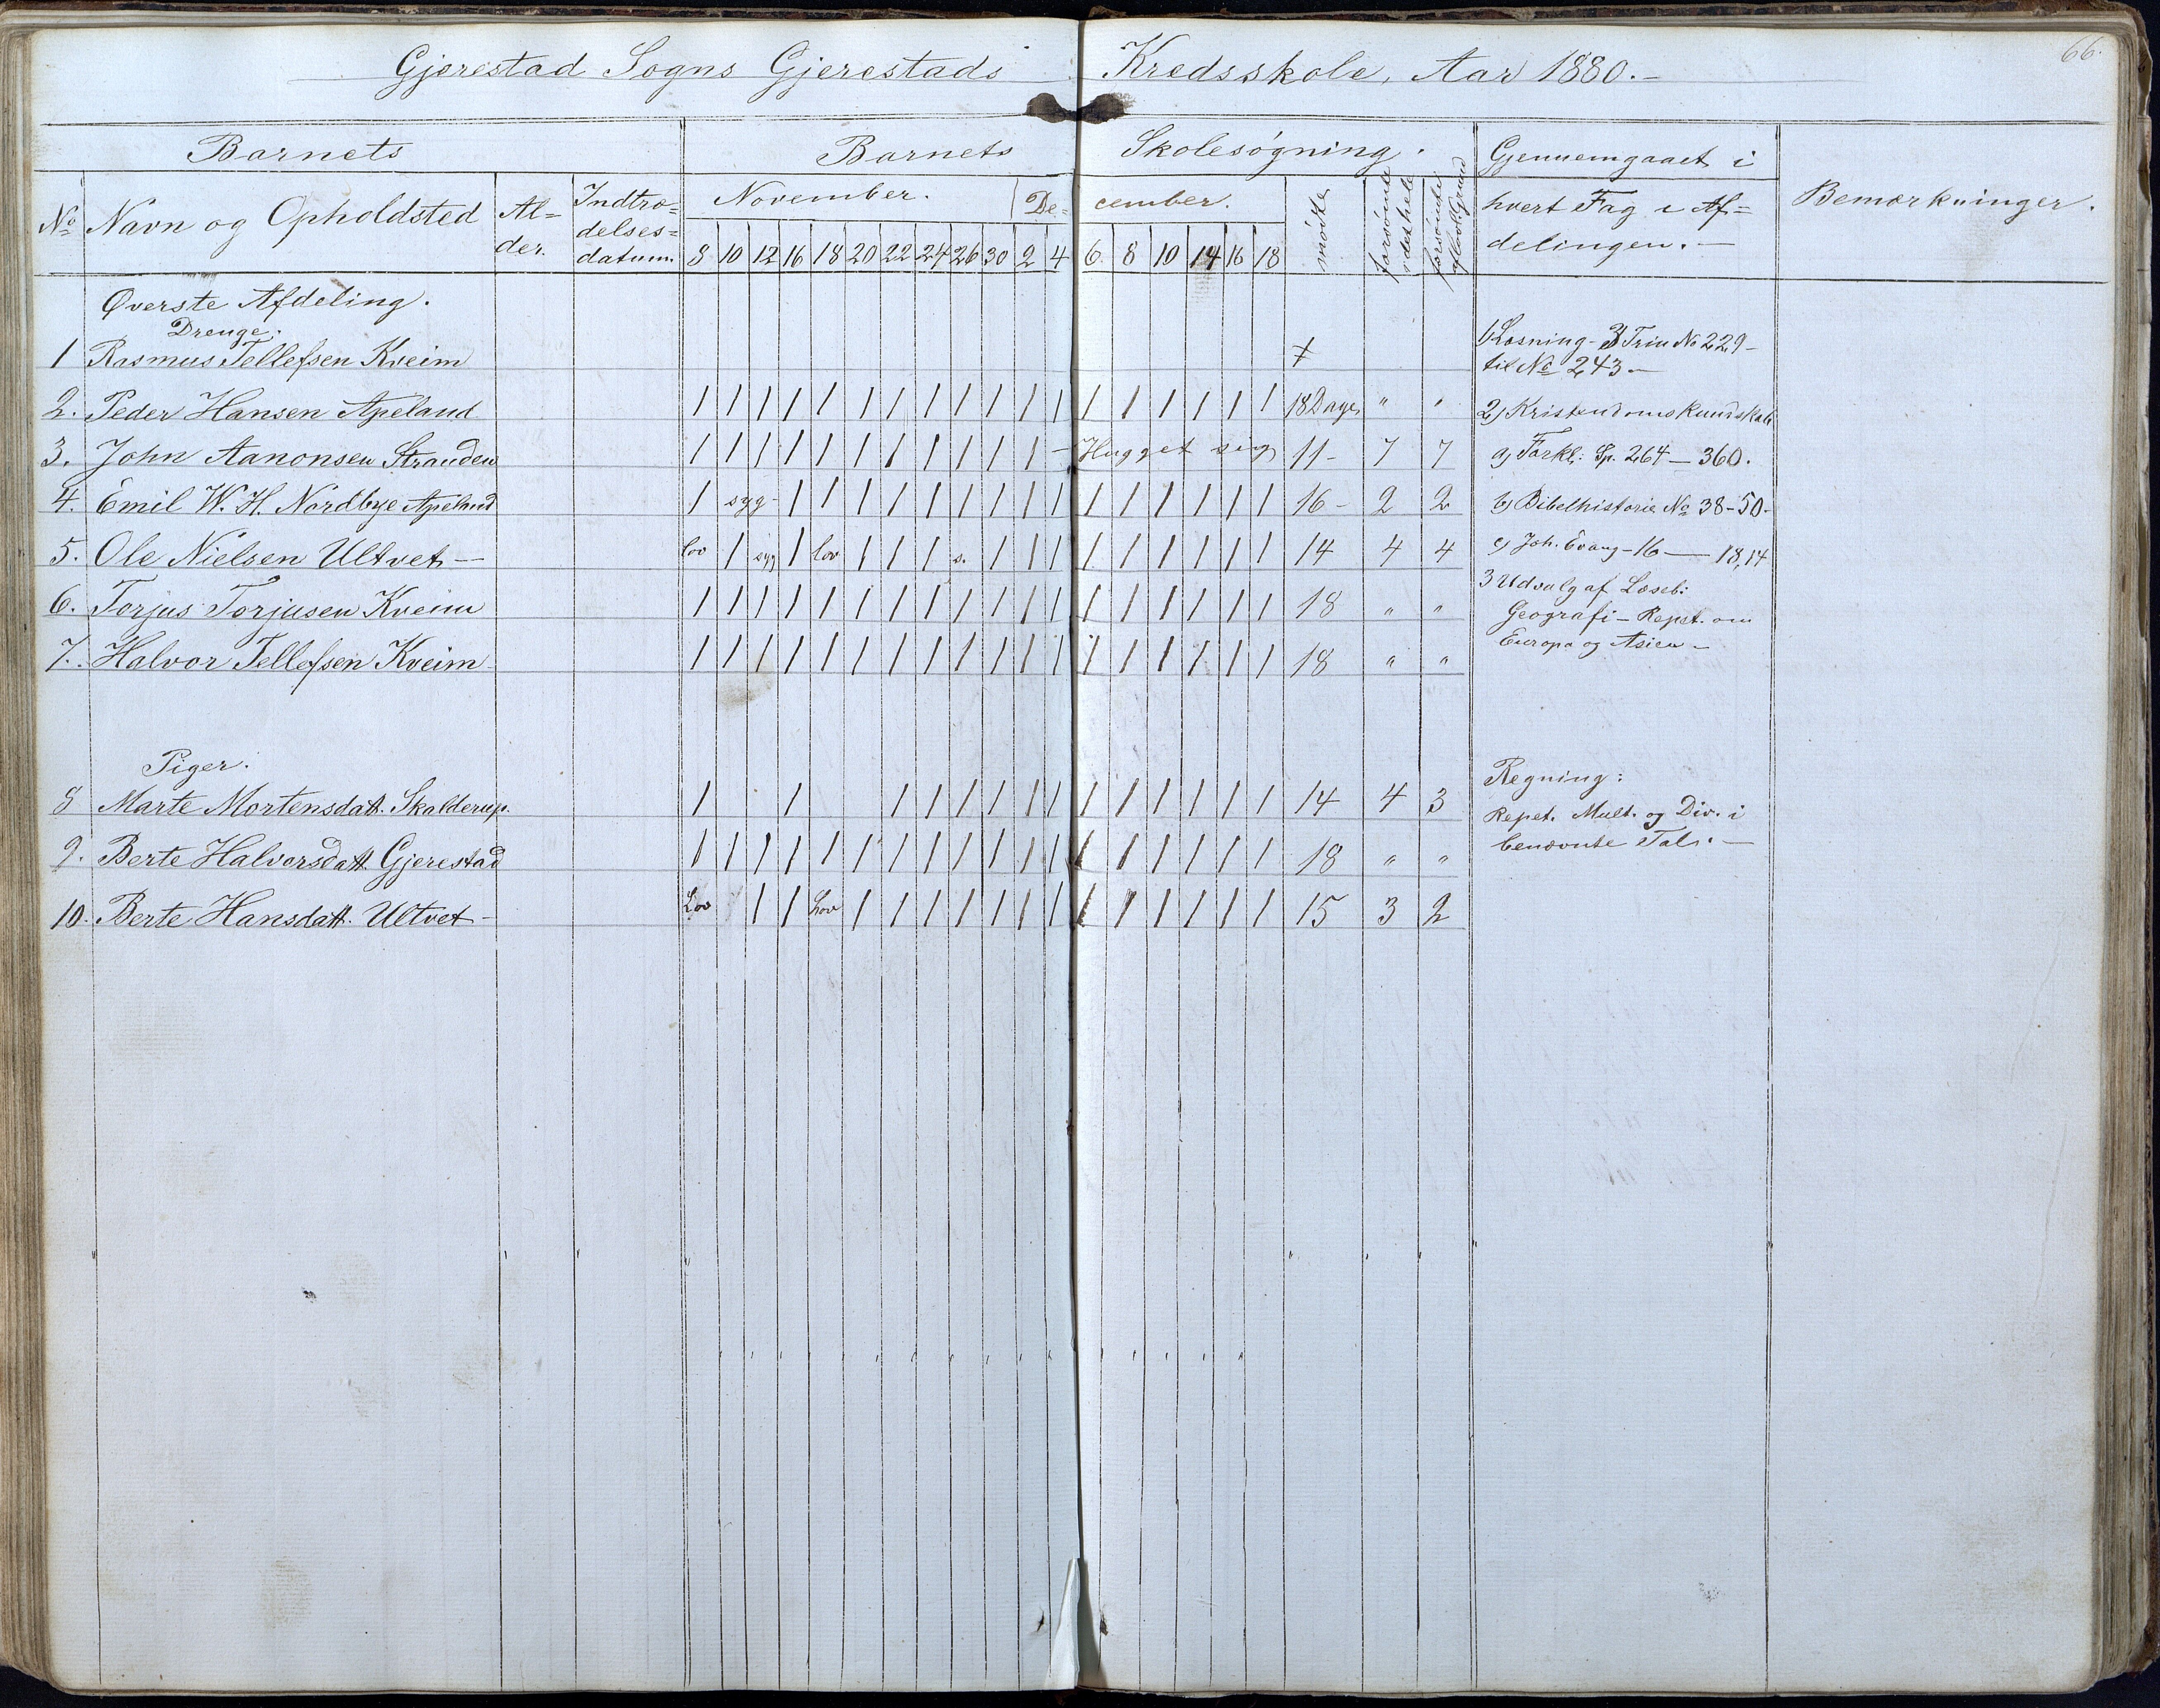 66.
Gjerestad Sogns Gjerestads Kredsskole, Aar 1880.-
Barnets Barnets Skolesøgning. Gjennemgaaet i Bemærkninger.
No Navn og Opholdsted Al= Indtræ= November. De- cember. mødte forsømte forsømte hvert Fag i Af=
der. delses= i det hele af lovl. Grund delingen.-
datum. 8 10 12 16 18 20 22 24 26 30 2 4 6 8 10 14 16 18
Øverste Afdeling.
Drenge.
1 Rasmus Tellefsen Kveim
1, Læsning - 3 Trin No 229-
til No 243-
2. Peder Hansen Apeland 1 1 1 1 1 1 1 1 1 1 1 1 1 1 1 1 1 1 18 Dage " " 2, Kristendomskundskab
3. John Aanonsen Stranden 1 1 1 1 1 1 1 1 1 1 1 - Hugget sig 11- 7 7 a, Forkl: Sp. 264-360.
4. Emil W. H. Nordbye Apeland 1 syg- 1 1 1 1 1 1 1 1 1 1 1 1 1 1 1 16- 2 2 b, Bibelhistorie No 38-50-
5. Ole Nielsen Ultvet- lov 1 syg 1 lov 1 1 1 s. 1 1 1 1 1 1 1 1 1 14 4 4 c, Joh. Evang-16-18,14
3 Udvalg af Læseb:
6. Torjus Torjusen Kveim 1 1 1 1 1 1 1 1 1 1 1 1 1 1 1 1 1 1 18 " " Geografi- Repet. om
Europa og Asien-
7. Halvor Tellefsen Kveim 1 1 1 1 1 1 1 1 1 1 1 1 1 1 1 1 1 1 18 " "
Piger.
Regning:
8 Marte Mortensdatt. Skalderup. 1 1 1 1 1 1 1 1 1 1 1 1 1 1 14 4 3 Repet. Mult. og Div. i
benævnte Tal.-
9. Berte Halvorsdatt. Gjerestad 1 1 1 1 1 1 1 1 1 1 1 1 1 1 1 1 1 1 18 " "
10. Berte Hansdatt. Ultvet- Lov 1 1 Lov 1 1 1 1 1 1 1 1 1 1 1 1 1 15 3 2